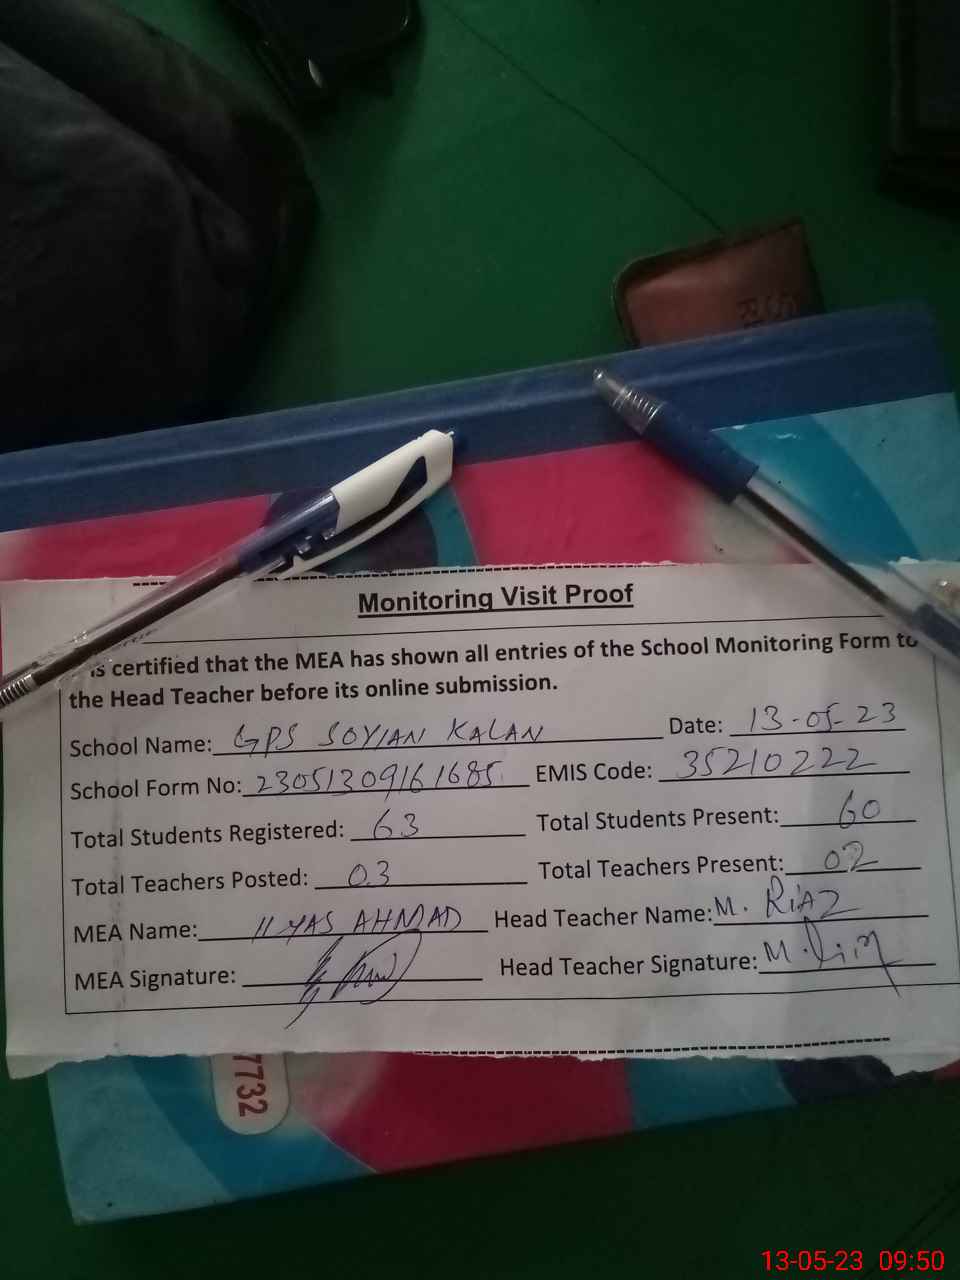 Monitoring Visit Proof
is certified that the MEA has shown all entries of the School Monitoring Form to
the Head Teacher before its online submission.
School Name: GPS SOYIAN KALAN Date: 13-05-23
School Form No: 23051309161685 EMIS Code: 35210222
Total Students Registered: 63 Total Students Present: 60
Total Teachers Posted: 03 Total Teachers Present: 02
MEA Name: ILYAS AHMAD Head Teacher Name: M. RiAZ
MEA Signature: Head Teacher Signature: M.
7732
13-05-23 09:50